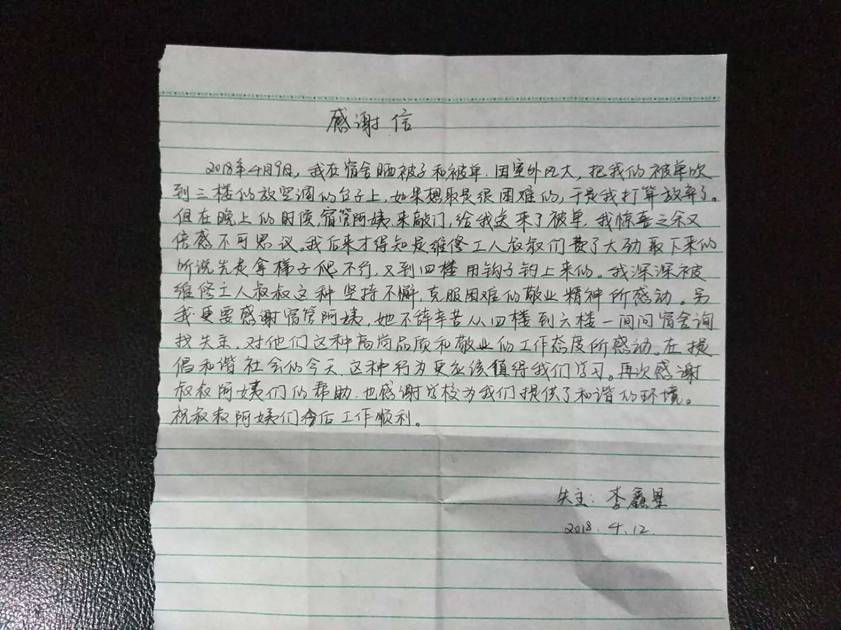 感谢信
2018年4月9日，我在宿舍晒被子和被单，因室外风大，把我的被单吹
到三楼的放空调的台子上，如果想取是很困难的，于是我打算放弃了。
但在晚上的时候，宿管阿姨来敲门，给我送来了被单，我惊喜之余又
倍感不可思议。我后来才得知是维修工人叔叔们费了大劲取下来的
听说先是拿梯子爬不行，又到四楼用钩子钩上来的。我深深被
维修工人叔叔这种坚持不懈，克服困难的敬业精神所感动。另
我更要感谢宿管阿姨，她不辞辛苦从四楼到六楼一间间宿舍询
找失主，对他们这种高尚品质和敬业的工作态度所感动。在提
倡和谐社会的今天，这种行为更应该值得我们学习。再次感谢
叔叔阿姨们的帮助，也感谢学校为我们提供了和谐的环境。
祝叔叔阿姨们今后工作顺利。
失主：李鑫星
2018.4.12